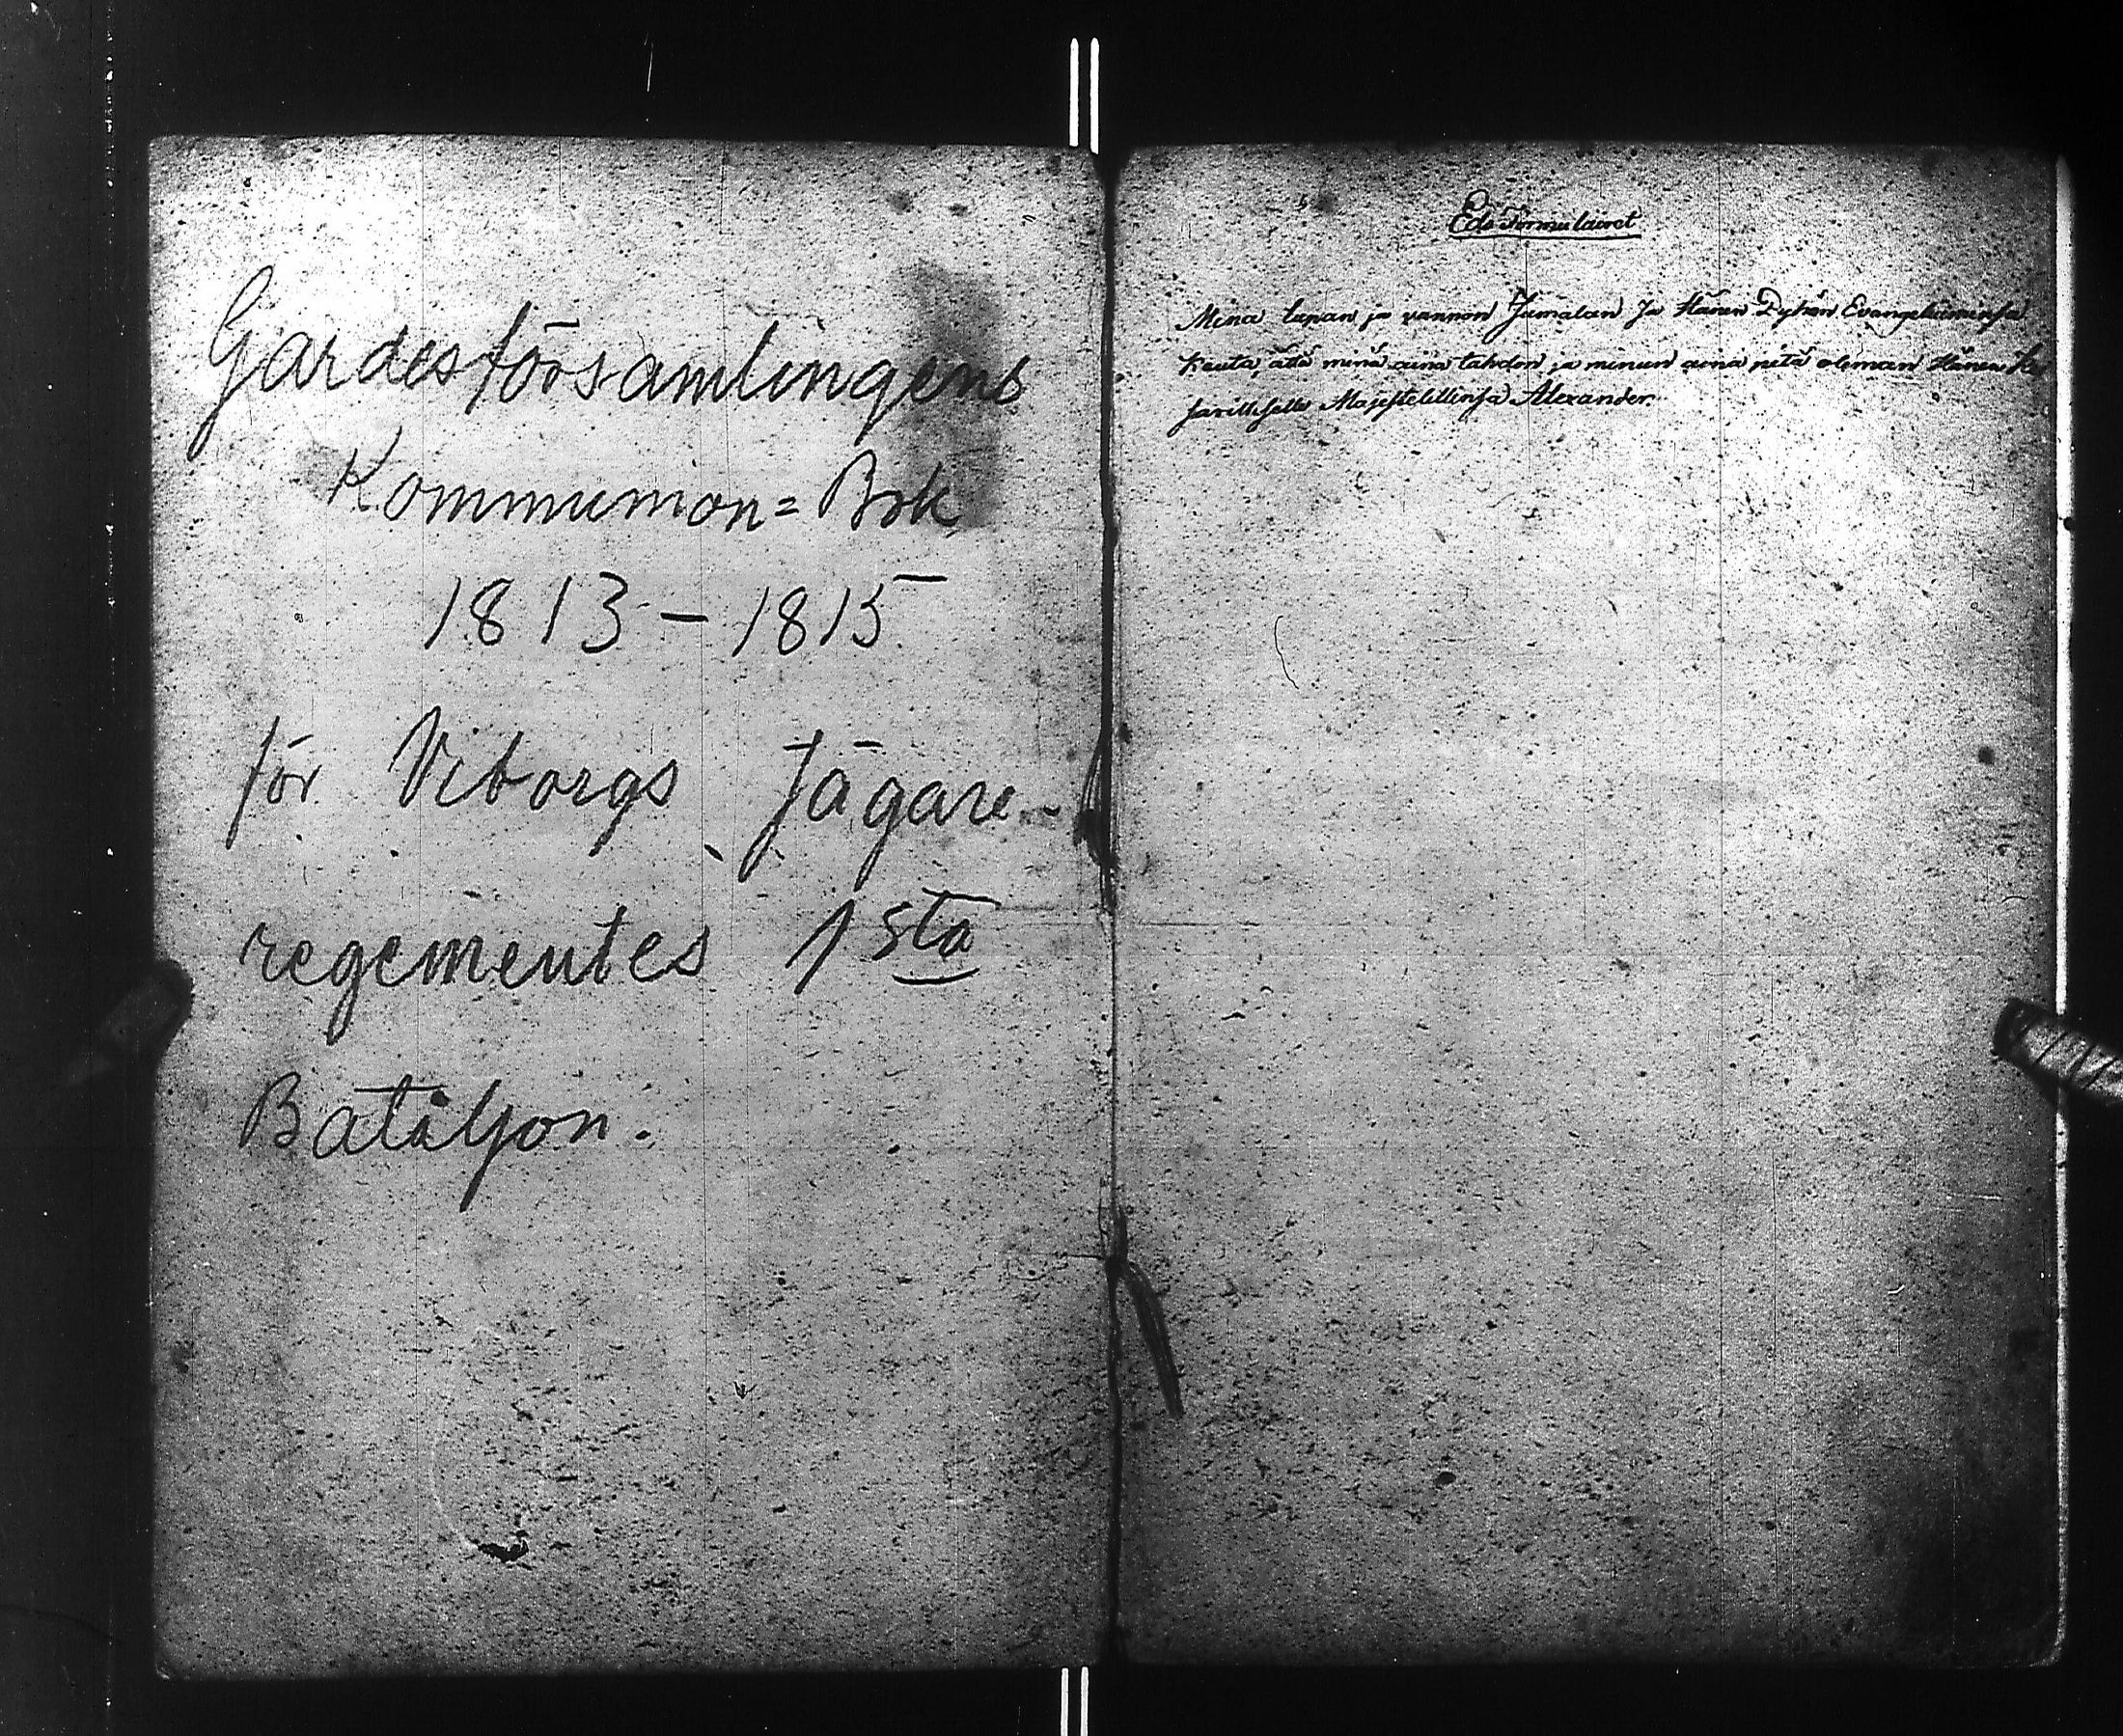 Gardesförsamlingens
Kommunion= Bok
1813 – 1815
för Viborgs Jägare-
regementes 1sta
Bataljon.
Eds Formulairet
Mina lupan ja vannon Jumalan Ja Hänen Pyhän Evangeliuminsa
kauta, ättä minä aina tahdon ja minun aina pitä oleman Hänen Ke
sarilliselle Majestetillinsa Alexander.